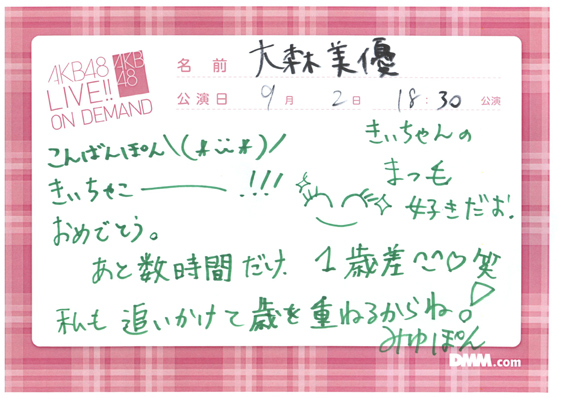 AKB48
LIVE!!
ON DEMAND
AKB
48
名前 大森美優
公演日 9月 2日 18:30 公演
こんばんぽん\(*¨*)/
きぃちゃこ――― .!!!
おめでとう。
きぃちゃんの
まつ毛
好きだお.
あと数時間だけ 1歳差^^♡ 笑
私も 追いかけて歳を重ねるからね。♡
みゆぽん
DMM.com